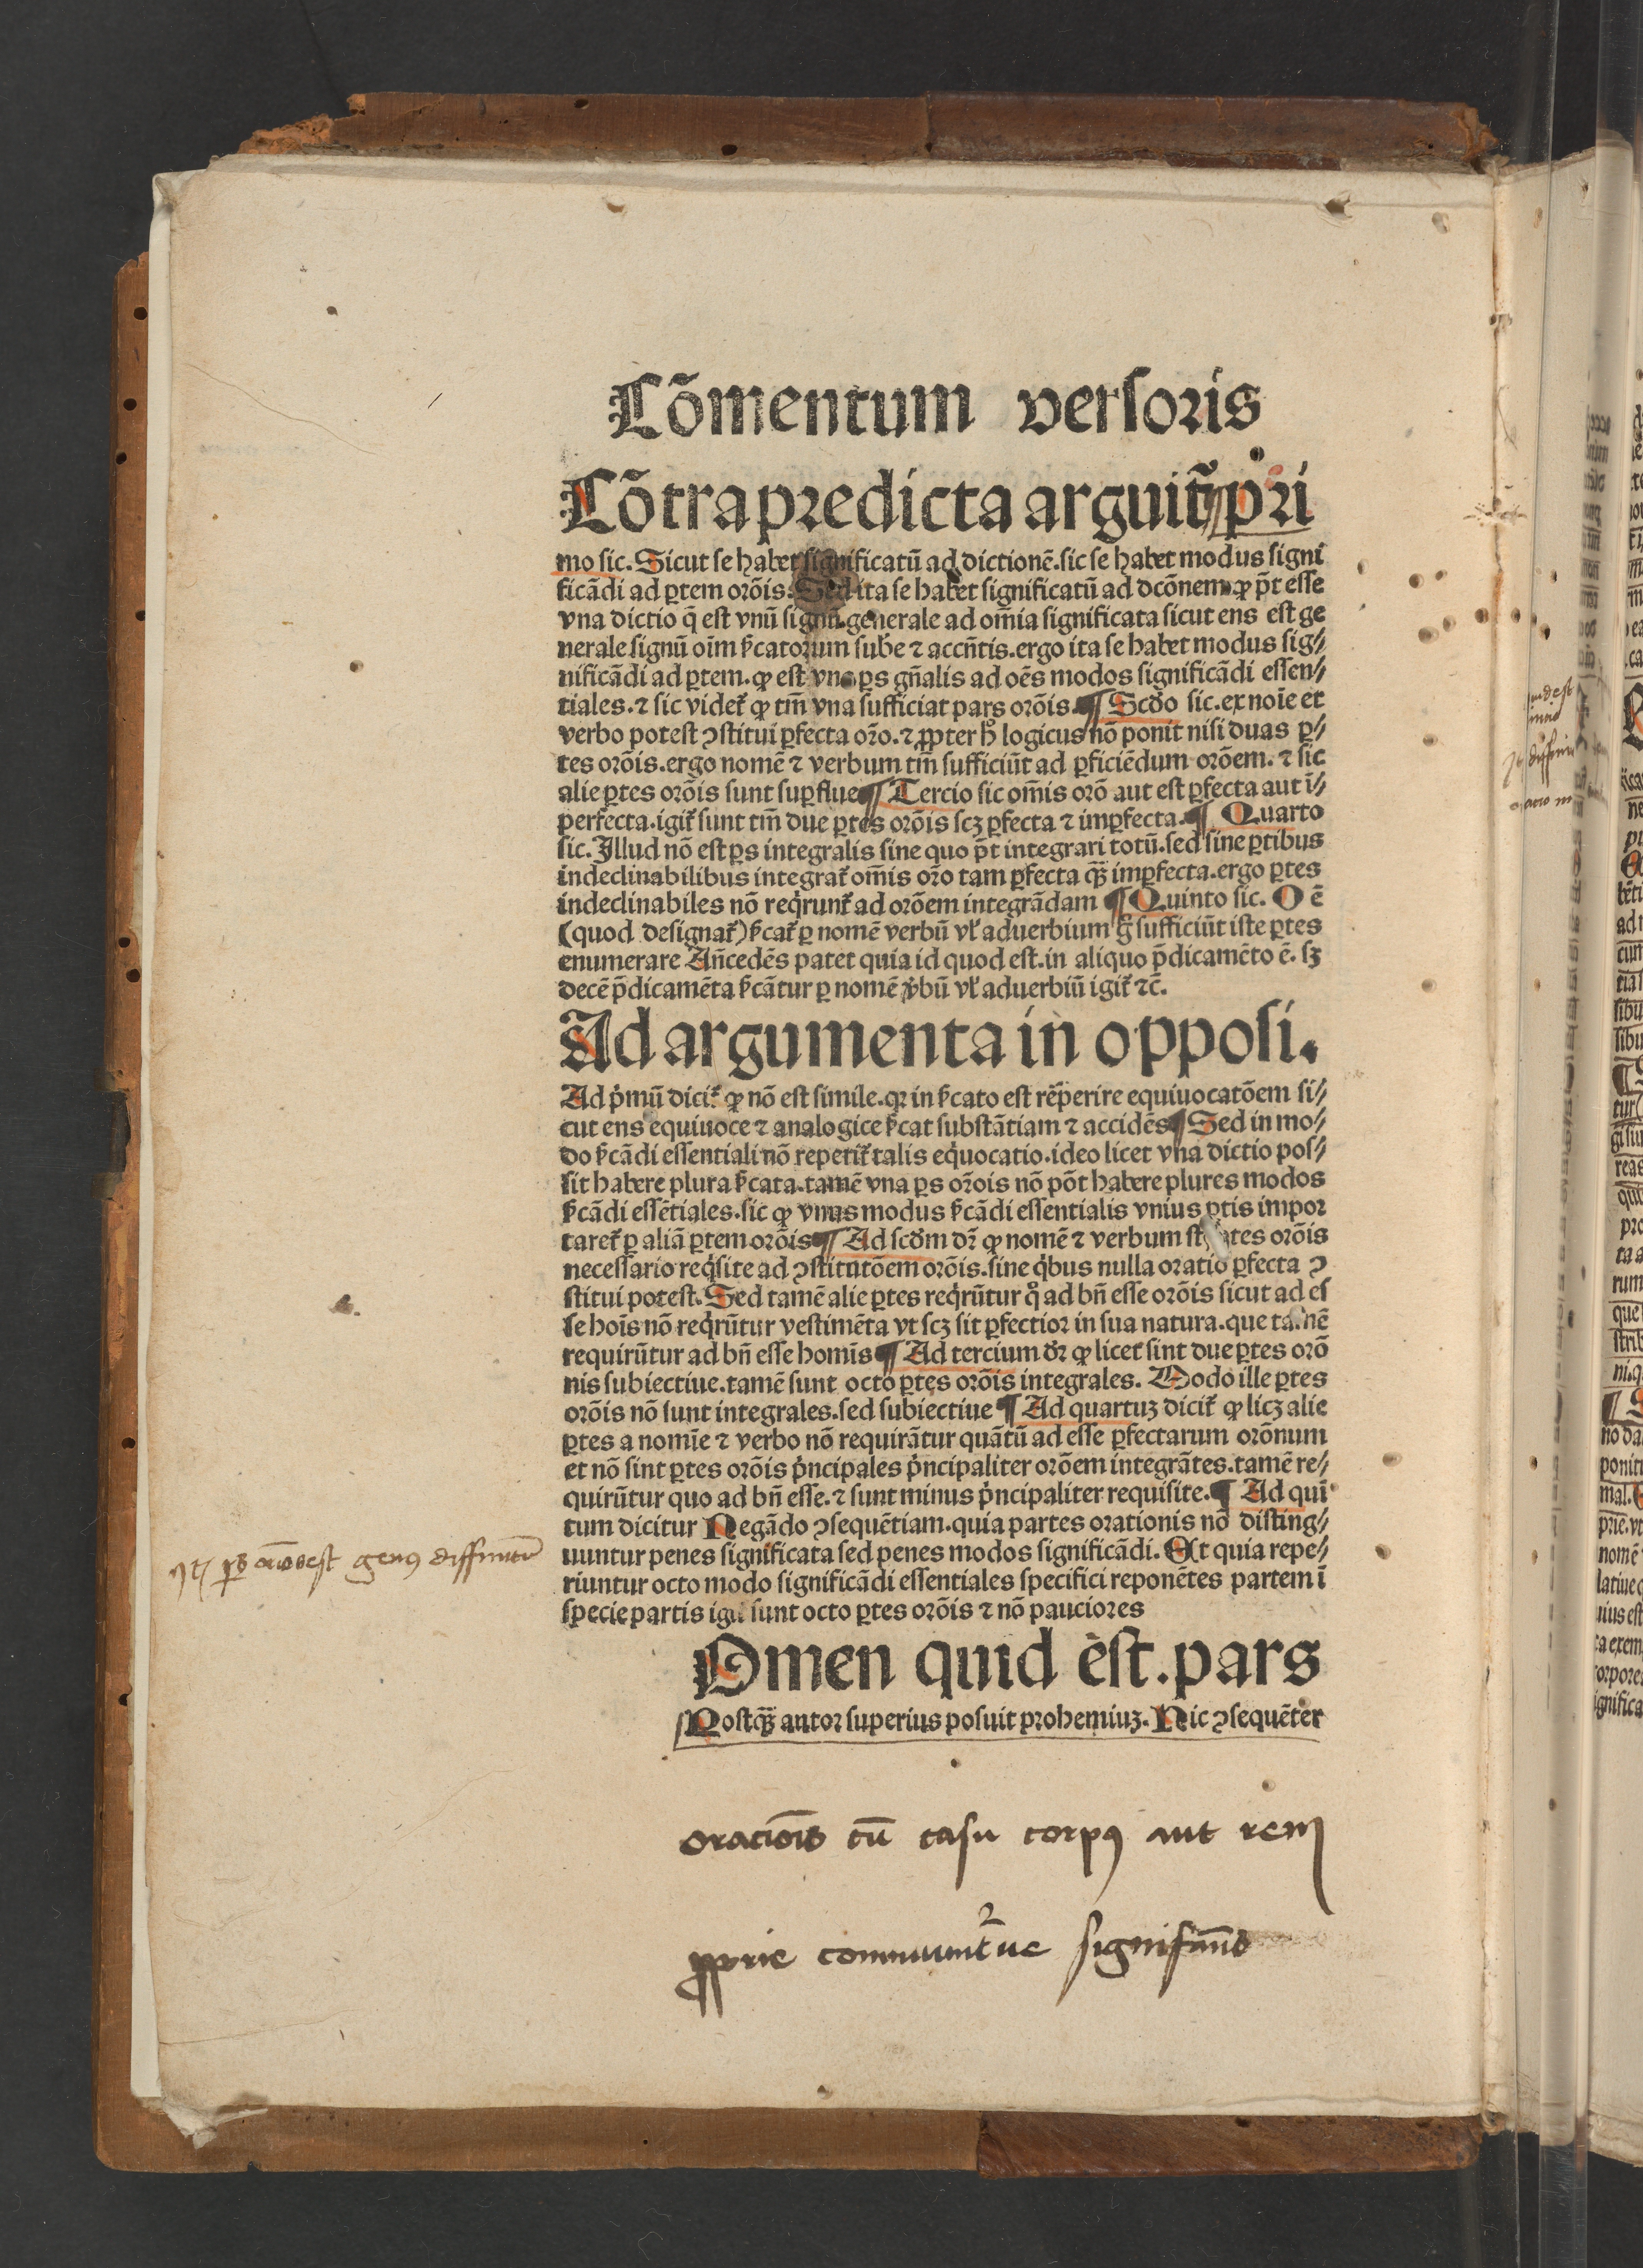 Cõmentum versoris
Cõtra predicta arguit᷑ pri
mo sic. Sicut se habet significatū ad dictionē. sic se habet modus signi
ficādi ad ꝑtem orōis. Sed ita se habet significatū ad dcōnem ꝙ p̄t esse
vna dictio q̄ est vnū signū generale ad om̄ia significata sicut ens est ge
nerale signū oīm ẜcatorum sube ⁊ accn̄tis. ergo ita se habet modus sig⸗
nificādi ad ꝑtem. ꝙ est vna ꝑs gn̄alis ad oēs modos significādi essen⸗
tiales. ⁊ sic videt᷑ ꝙ tm̄ vna sufficiat pars orōis. ¶ Scd̄o sic. ex noīe et
verbo potest ꝯstitui ꝑfecta orō. ⁊ ꝓpter hͦ logicus nō ponit nisi duas ꝑ⸗
tes orōis. ergo nomē ⁊ verbum tm̄ sufficiūt ad ꝑficiēdum orōem. ⁊ sic
alie ꝑtes orōis sunt suꝑflue ¶ Tercio sic om̄is orō aut est ꝑfecta aut ī⸗
perfecta. igit᷑ sunt tm̄ due ꝑtes orōis scꝫ ꝑfecta ⁊ imꝑfecta. ¶ Quarto
sic. Illud nō est ꝑs integralis sine quo p̄t integrari totū. sed sine ꝑtibus
indeclinabilibus integrat᷑ om̄is orō tam ꝑfecta qꝫ̄ imꝑfecta. ergo ꝑtes
indeclinabiles nō reqͥrunt᷑ ad orōem integrādam ¶ Quinto sic. O ē
(quod designat᷑) ẜcat᷑ ꝑ nomē verbū vl̓ aduerbium g̊ sufficiūt iste ꝑtes
enumerare An̄cedēs patet quia id quod est. in aliquo p̄dicamēto ē. sꝫ
decē p̄dicamēta ẜcātur ꝑ nomē v̓bū vl̓ aduerbiū igit᷑ ⁊c̄.
Ad argumenta in opposi.
Ad pͥmū dicit᷑ ꝙ nō est simile. qꝛ in ẜcato est reperire equiuocatōem si⸗
cut ens equiuoce ⁊ analogice ẜcat substātiam ⁊ accidēs ¶ Sed in mo⸗
do ẜcādi essentiali nō reperit᷑ talis eqͥuocatio. ideo licet vna dictio pos⸗
sit habere plura ẜcata. tamē vna ꝑs orōis nō pōt habere plures modos
ẜcādi essētiales. sic ꝙ vnus modus ẜcādi essentialis vnius ꝑtis impor
taret᷑ ꝑ aliā ꝑtem orōis ¶ Ad scd̄m dr̄ ꝙ nomē ⁊ verbum st̄ ꝑtes orōis
necessario reqͥsite ad ꝯstitutōem orōis. sine qͥbus nulla oratio ꝑfecta ꝯ
stitui potest. Sed tamē alie ꝑtes reqͥrūtur qͦ ad bn̄ esse orōis sicut ad es
se hoīs nō reqͥrūtur vestimēta vt scꝫ sit ꝑfectior in sua natura. que tamē
requirūtur ad bn̄ esse homīs ¶ Ad tercium dr̄ ꝙ licet sint due ꝑtes orō
nis subiectiue. tamē sunt octo ꝑtes orōis integrales. Modo ille ꝑtes
orōis nō sunt integrales. sed subiectiue ¶ Ad quartuꝫ dicit᷑ ꝙ licꝫ alie
ꝑtes a nomīe ⁊ verbo nō requirātur quātū ad esse ꝑfectarum orōnum
et nō sint ꝑtes orōis pͥncipales pͥncipaliter orōem integrātes. tamē re⸗
quirūtur quo ad bn̄ esse. ⁊ sunt minus pͥncipaliter requisite. ¶ Ad quī
tum dicitur Negādo ꝯsequētiam. quia partes orationis nō disting⸗
uuntur penes significata sed penes modos significādi. Et quia repe⸗
riuntur octo modo significādi essentiales specifici reponētes partem ī
specie partis igit᷑ sunt octo ꝑtes orōis ⁊ nō pauciores
Omen quid est. pars
Postqꝫ̄ autor superius posuit prohemiuꝫ. Hic ꝯsequēter
oracōnis cū casu corpꝰ aut rem
ꝓprie communit᷑ue signifās
genꝰ diffinitū